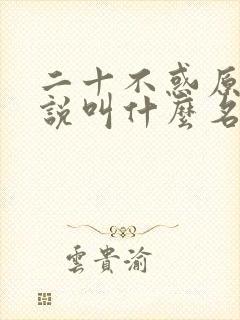 二十不惑原
說叫什麼名
雲貴渝